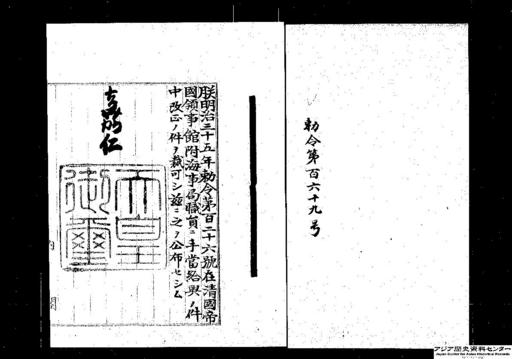 勅令第百六十九号
朕明治三十五年勅令第百二十六號在清國帝
國領事館附海事局職員ニ手當給與ノ件
中改正ノ件ヲ裁可シ茲ニ之ヲ公布セシム
嘉仁
天皇
御璽
アジア歴史資料センター
Japan Center for Asian Historical Records